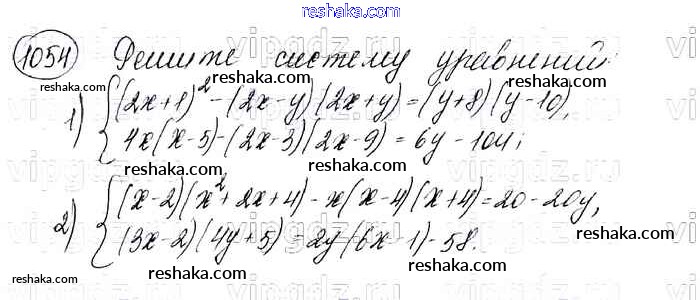 reshaka.com
1054 Решите систему уравнений:
reshaka.com reshaka.com
1) { (2x+1)² - (2x-y)(2x+y) = (y+8)(y-10),
4x(x-5) - (2x-3)(2x-9) = 6y - 104;
reshaka.com reshaka.com
2) { (x-2)(x²+2x+4) - x(x-4)(x+4) = 20 - 20y,
reshaka.com
(3x-2)(4y+5) = 2y(6x-1) - 58.
reshaka.com reshaka.com
reshaka.com